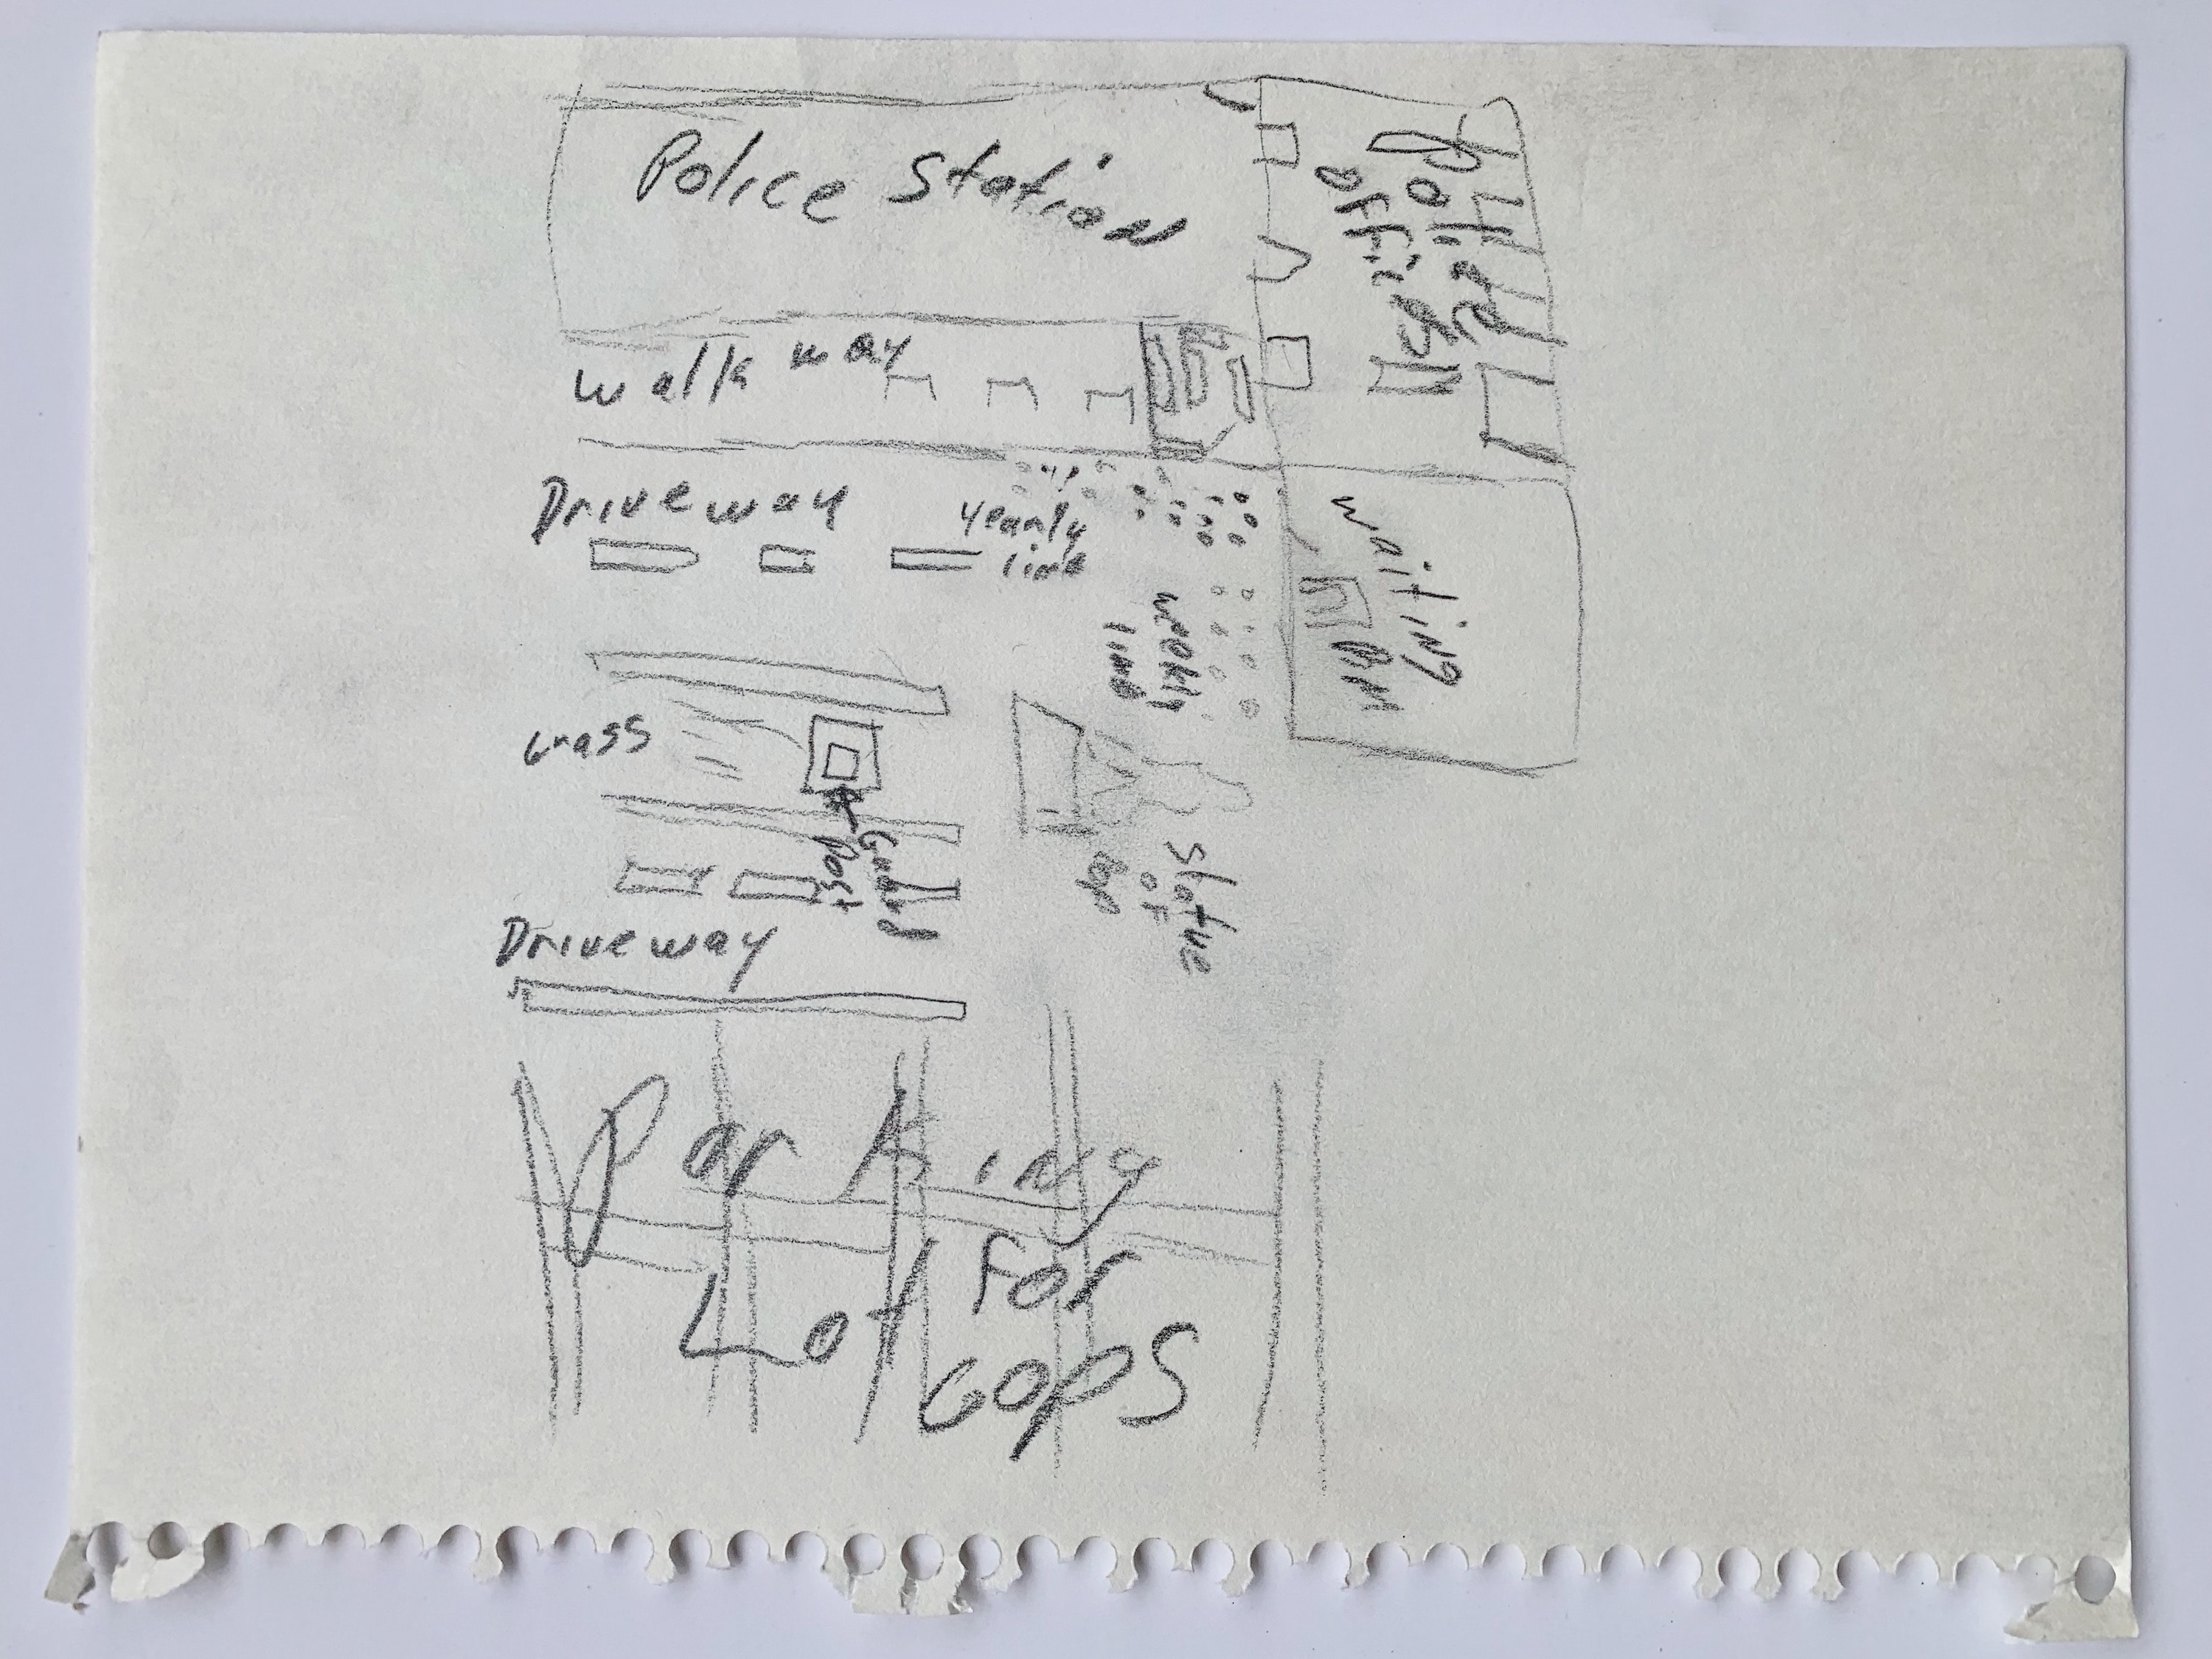 Police Station
Police
Walk way
Driveway
yearly
line
waiting
Grass
Guard
Post
Statue
of
Driveway
Parking
Lot For
Cops